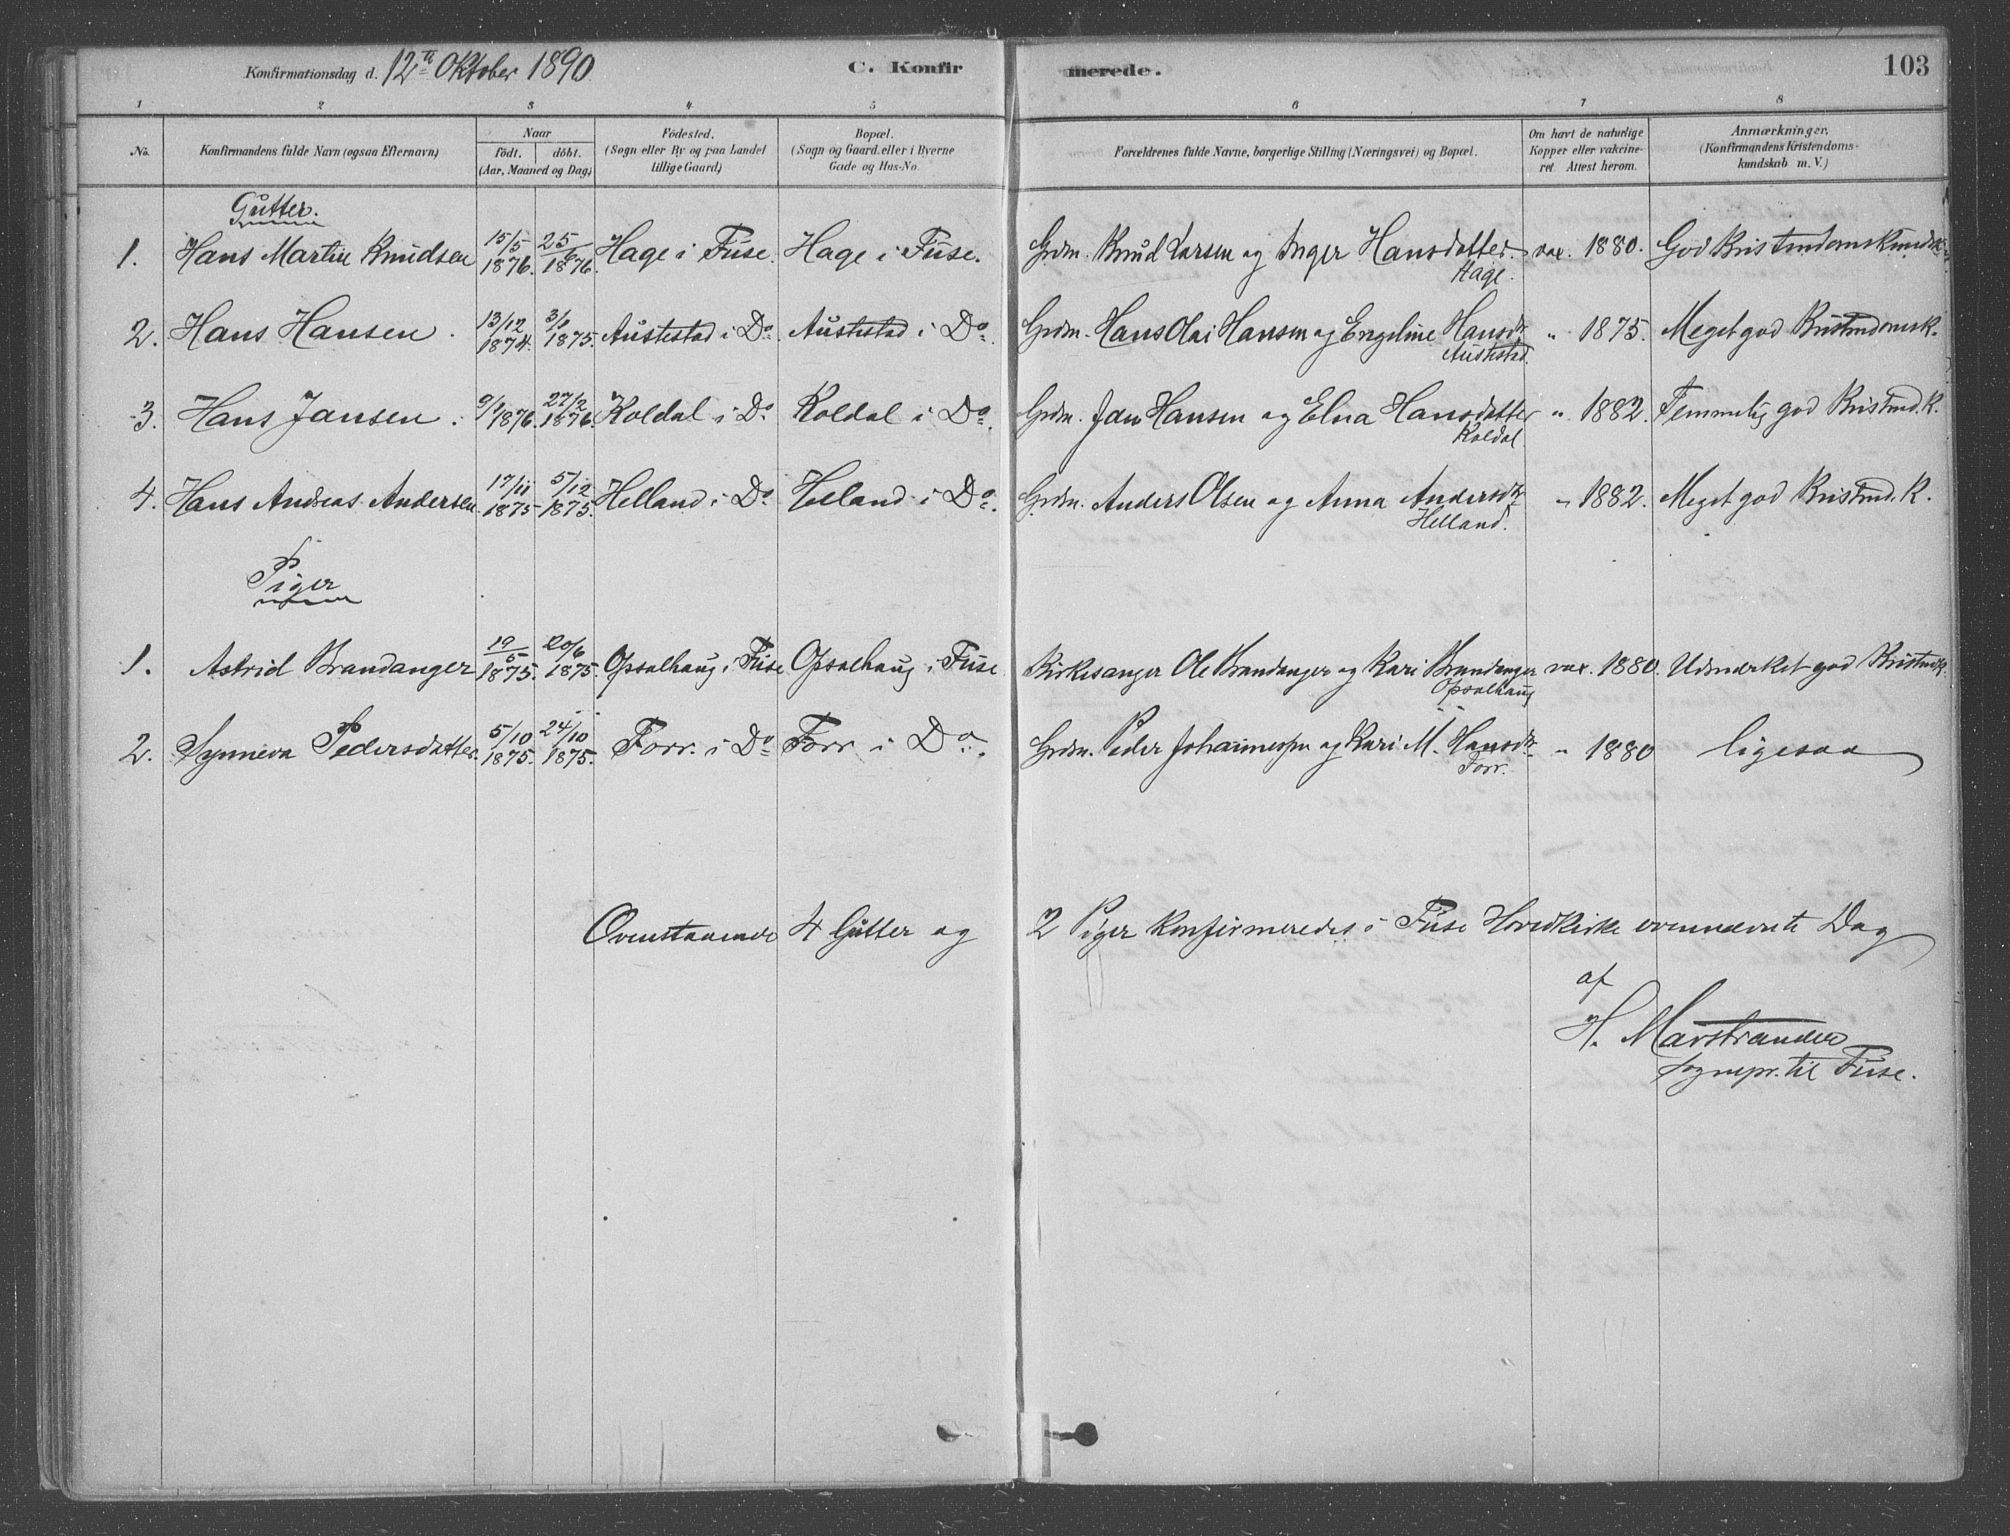 Konfirmationsdag d. 12te Oktober 1890. C. Konfirmerede. 103
1 2 3 4 5 6 7 8
No. Konfirmandens fulde Navn (ogsaa Efternavn) Naar født. døbt. (Aar, Maaned og Dag) Fødested. (Sogn eller By og paa Landet tillige Gaard) Bopæl. (Sogn og Gaard, eller i Byerne Gade og Hus-No. Forældrenes fulde Navne, borgerlige Stilling (Næringsvei) og Bopæl. Om havt de naturlige Kopper eller vakcineret Attest herom. Anmærkninger, (Konfirmandens Kristendomskundskab m. V.)
Gutter.
1. Hans Martin Knudsen 15/5 1876. 25/6 1876. Hage i Fuse. Hage i Fuse. Grdm. Knud Larsen og Inger Hansdatter Hage. vax. 1880. God Kristendomskundsk.
2. Hans Hansen. 13/12 1874. 3/1 1875. Austestad i Do. Austestad i Do. Grdm. Hans Olai Hansen og Engeline Hansdtr. Austestad. " 1875. Meget god Kristendomsk.
3. Hans Jansen. 9/1 1876. 27/2 1876. Koldal i Do. Koldal i Do. Grdm. Jan Hansen og Elna Hansdatter Koldal. " 1882. Temmelig god Kristend.K.
4. Hans Andreas Andersen 17/11 1875. 5/12 1875. Helland i Do. Helland i Do. Grdm. Anders Olsen og Anna Andersdtr. Helland. " 1882. Meget god Kristend.K.
Piger
1. Astrid Brandanger 19/5 1875. 20/6 1875. Opsalhaug i Fuse Opsalhaug i Fuse Kirkesanger Ole Brandanger og Kari Brandanger Opsalhaug vax. 1880. Udmærket god Kristendk.
2. Synneva Pedersdatter. 5/10 1875. 24/10 1875. Forr. i Do. Forr i Do. Grdm. Peder Johannessen og Kari M. Hansdtr. Forr. " 1880 ligesaa
Ovenstaaende 4 Gutter og 2 Piger konfirmeredes i Fuse Hovedkirke ovennævnte Dag
af
H. Marstrander
Sognepr. til Fuse.